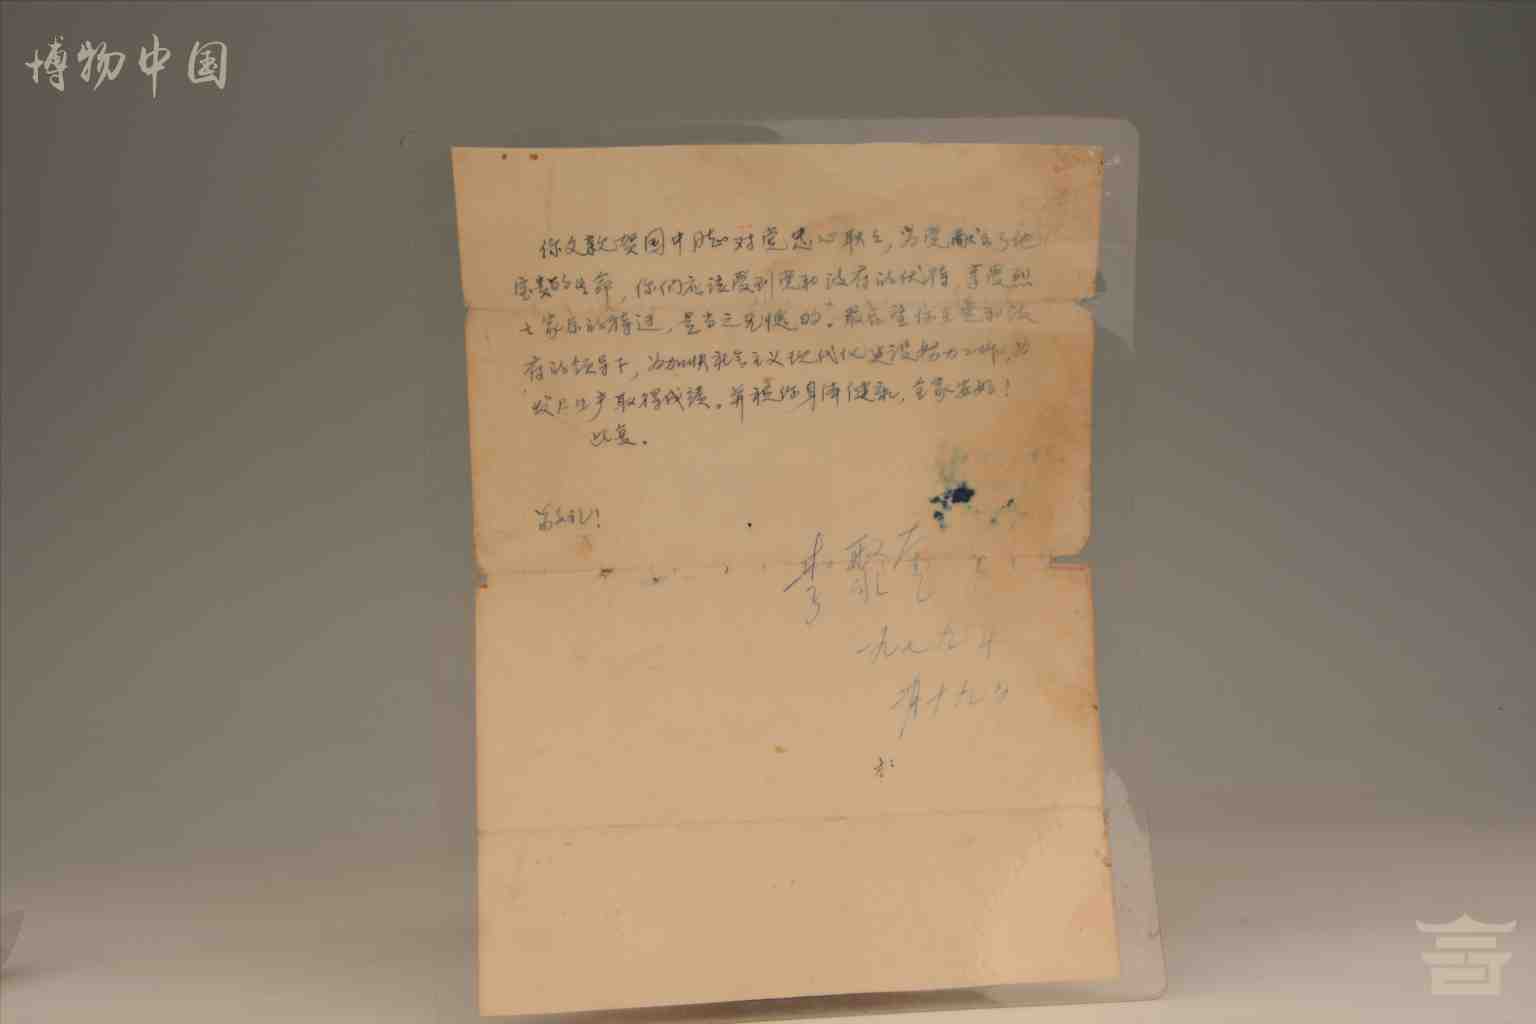 博物中国
你父亲贺国中同志对党忠心耿耿，为党献出了他
宝贵的生命，你们应该受到党和政府的优待，享受烈
士家属的待遇，是当之无愧的。最后望你在党和政
府的领导下，为加快社会主义现代化建设努力工作，为
发展生产取得成绩。并祝你身体健康，全家安好！
此复。
敬礼！
李聚奎
一九七九年
月十九日